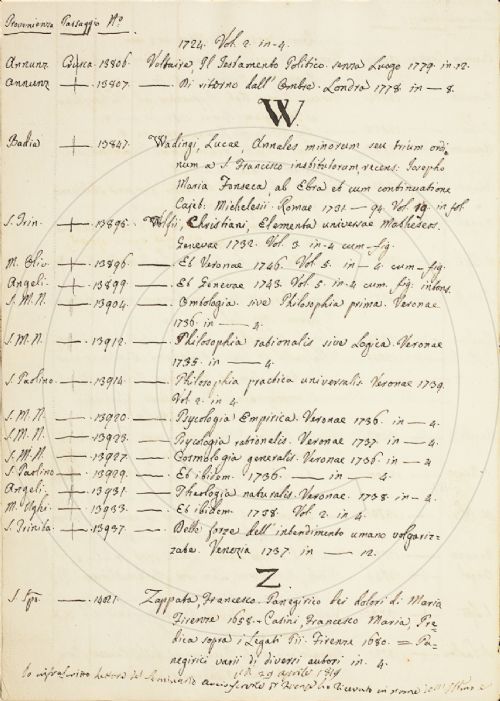 Provenienza Passaggio Nº
1724. Vol. 2. in-4.
Annunz. Busca. 13806. Voltaire, Il Testamento Politico. senza Luogo 1779. in-12.
Annunz. — 13807. — Di ritorno dall' Ombre. Londra 1778 in — 8.
W.
Badia — 13847. Wadingi, Lucae, Annales minorum seu trium ordi-
num a S. Francesco institutorum, recens: Josepho
Maria Fonseca, ab Ebra et cum continuatione
Cajet: Michelesii. Romae 1731 — 94. Vol. 19. in fol.
S. Trin. — 13895. Wolfii, Christiani, Elementa universae Matheseos.
Genevae 1732. Vol. 3. in-4 cum-fig.
M. Oliv. — 13896. — Et Veronae 1746. Vol. 5. in-4. cum-fig.
Angeli. — 13899. — Et Genevae 1743. Vol. 5. in-4. cum. fig. intons.
S. M. N. — 13904. — Ontologia sive Philosophia prima. Veronae
1736. in — 4.
S. M. N. — 13912. — Philosophia rationalis sive Logica. Veronae
1735. in — 4.
S. Paolino. — 13914. — Philosophia practica universalis Veronae 1739.
Vol. 2. in 4.
S. M. N. — 13920. — Psycologia Empirica. Veronae 1736. in — 4.
S. M. N. — 13923. — Psycologia rationalis. Veronae 1737. in — 4.
S. M. N. — 13927. — Cosmologia generalis. Veronae 1736. in — 4
S. Paolino — 13929. — Et ibidem. 1736. — in — 4.
Angeli. — 13931. — Theologia naturalis. Veronae. 1738. in — 4.
M. Ughi — 13933. — Et ibidem. 1738. Vol. 2. in 4.
S. Trinita — 13937. — Delle forze dell' intendimento umano volgariz-
zate. Venezia 1737. in — 12.
Z.
S. Spo. — 14021. Zappata, Francesco. Panegirico dei dolori di Maria
Firenze 1658. Casini, Francesco Maria, Pre-
dica sopra i Legati Pii. Firenze 1680. = Pa-
negirici varii di diversi autori in. 4.
29 aprile
Io infrascritto del Seminario di Firenze ho ricevuto in nome